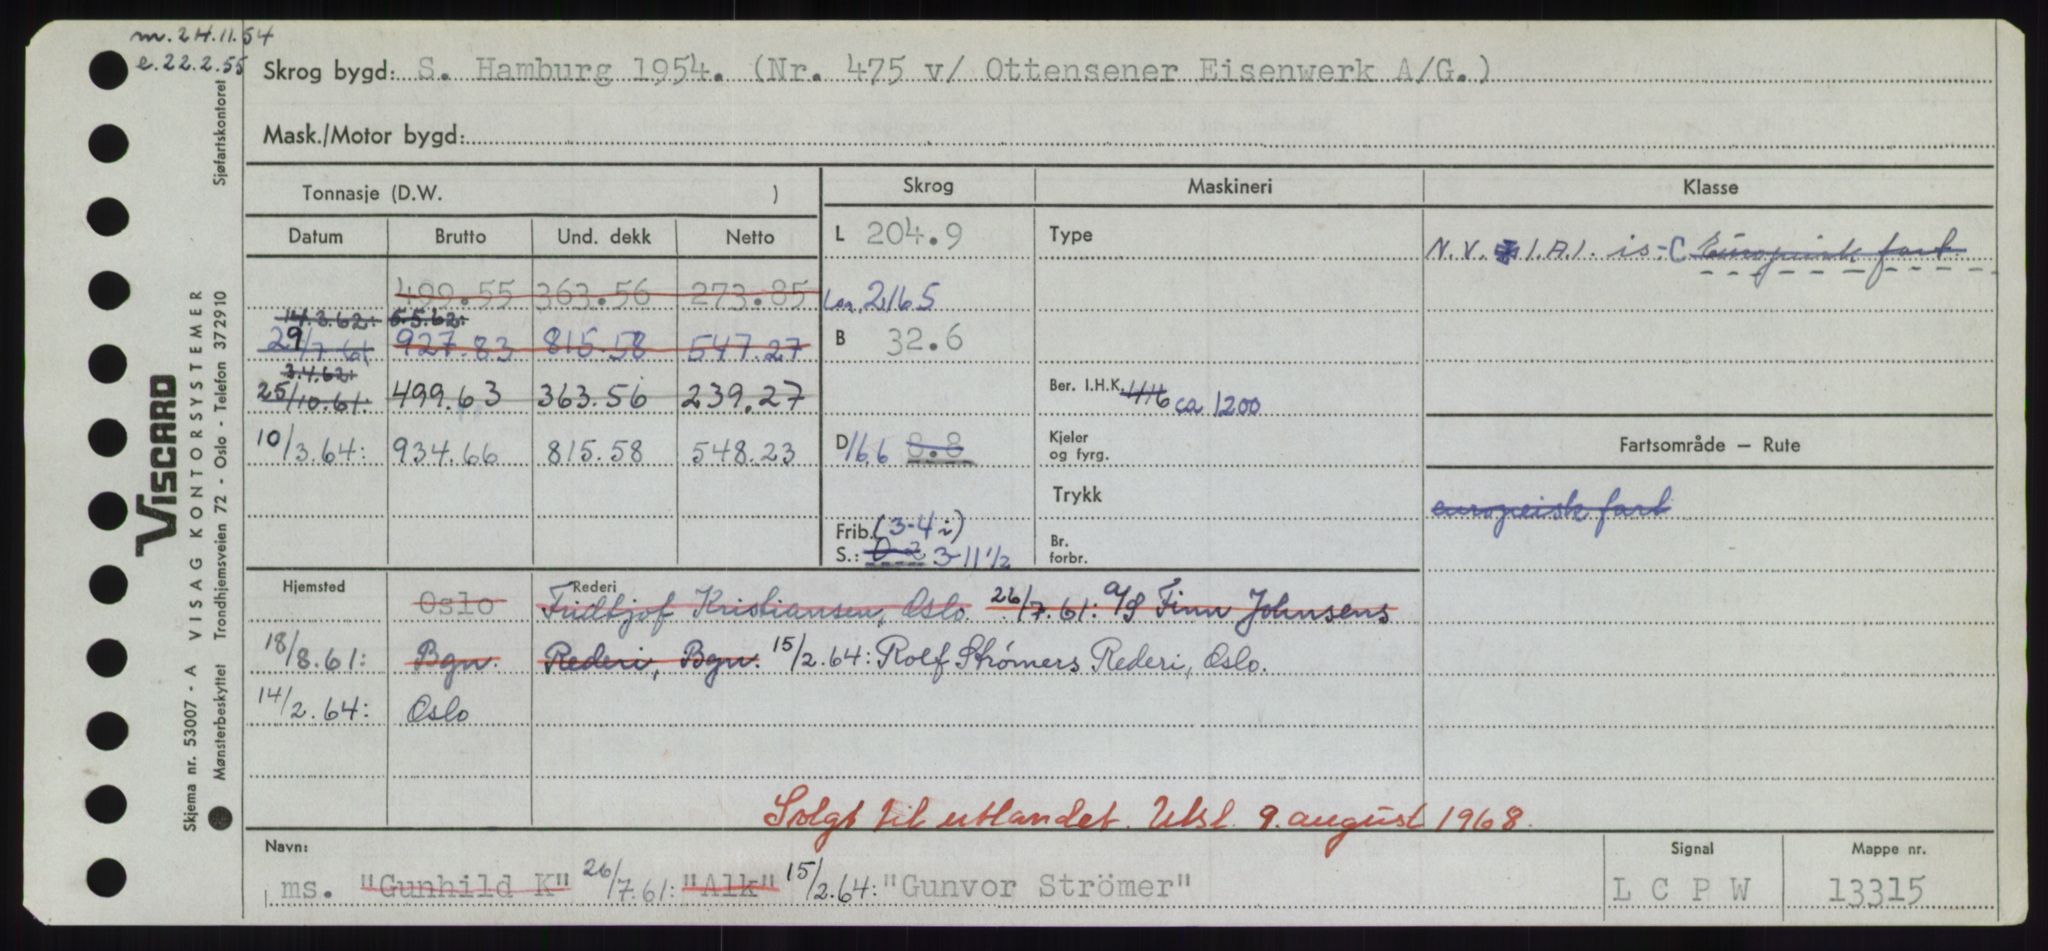 m. 24.11.54
e. 22.2.55
Skrog bygd: S. Hamburg 1954. (Nr. 475 v/ Ottensener Eisenwerk A/G.)
Mask./Motor bygd:
Tonnasje (D.W. ) Skrog Maskineri Klasse
Datum Brutto Und. dekk Netto L 204.9 Type N.V. ✠ 1.A.1. is-C Europeisk fart
499.55 363.56 273.85 Loa. 216.5
14.3.62: 5.5.62:
29/7.61 927.83 815.58 547.27 B 32.6
3.4.62:
25/10.61: 499.63 363.56 239.27 Ber. I.H.K. 446 ca 1200
10/3.64: 934.66 815.58 548.23 D 16.6 8.8 Kjeler og fyrg. Fartsområde — Rute
Trykk europeisk fart
Frib. (3-4 i) Br.
S.: 0-2 3-11 1/2 forbr.
Hjemsted Rederi
Oslo Fridtjof Kristiansen, Oslo. 26/7.61: A/S Finn Johnsens
18/8.61: Bgn. Rederi, Bgn. 15/2.64: Rolf Strömers Rederi, Oslo.
14/2.64: Oslo
Solgt til utlandet. Utsl. 9. august 1968.
Navn: Signal Mappe nr.
ms. "Gunhild K" 26/7.61: "Alk" 15/2.64: "Gunvor Strömer" L C P W 13315
VISCARD
Skjema nr. 53007 - A VISAG KONTORSYSTEMER
Mønsterbeskyttet Trondhjemsveien 72 - Oslo - Telefon 372910 Sjøfartskontoret